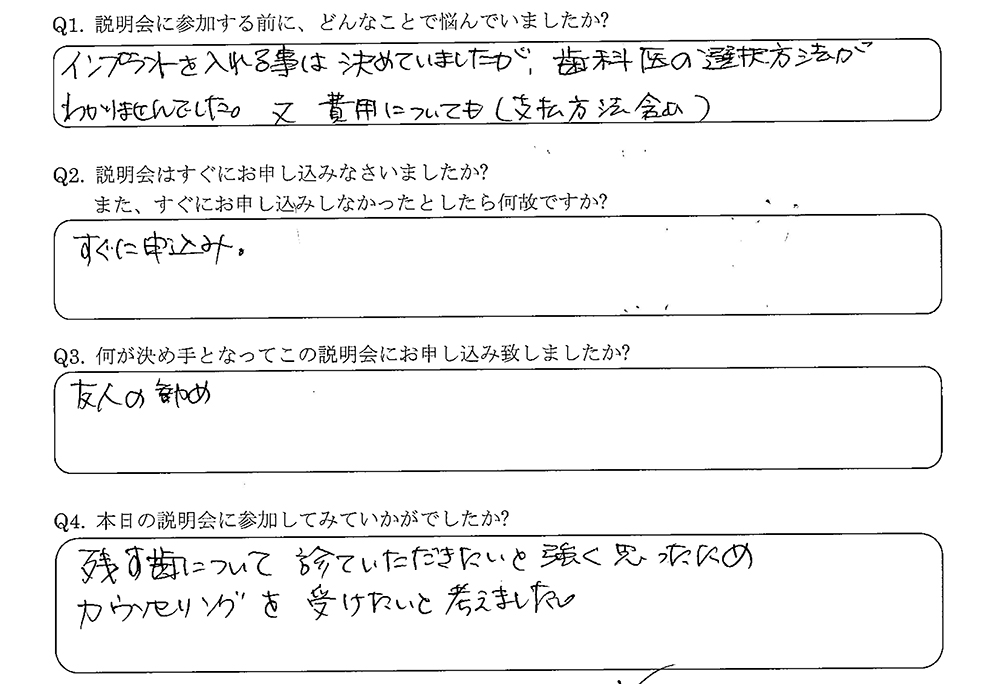 Q1. 説明会に参加する前に、どんなことで悩んでいましたか?
インプラントを入れる事は決めていましたが、歯科医の選択方法が
わかりませんでした。又 費用についても(支払方法含め)
Q2. 説明会はすぐにお申し込みなさいましたか?
また、すぐにお申し込みしなかったとしたら何故ですか?
すぐに申込み。
Q3. 何が決め手となってこの説明会にお申し込み致しましたか?
友人の勧め
Q4. 本日の説明会に参加してみていかがでしたか?
残す歯について 診ていただきたいと強く思ったため
カウンセリングを 受けたいと考えました。